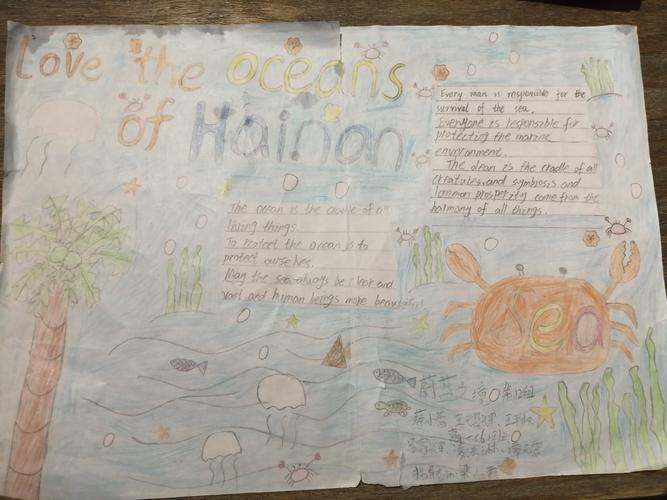 Love the oceans
of Hainan
Every man is responsible for the
survival of the sea.
Everyone is responsible for
protecting the marine
environment.
The ocean is the cradle of all
creatures, and symbiosis and
common prosperity come from the
harmony of all things.
The ocean is the cradle of all
living things.
To protect the ocean is to
protect ourselves.
May the sea always be clear and
vast and human beings more beautiful!
Sea
蔚蓝之